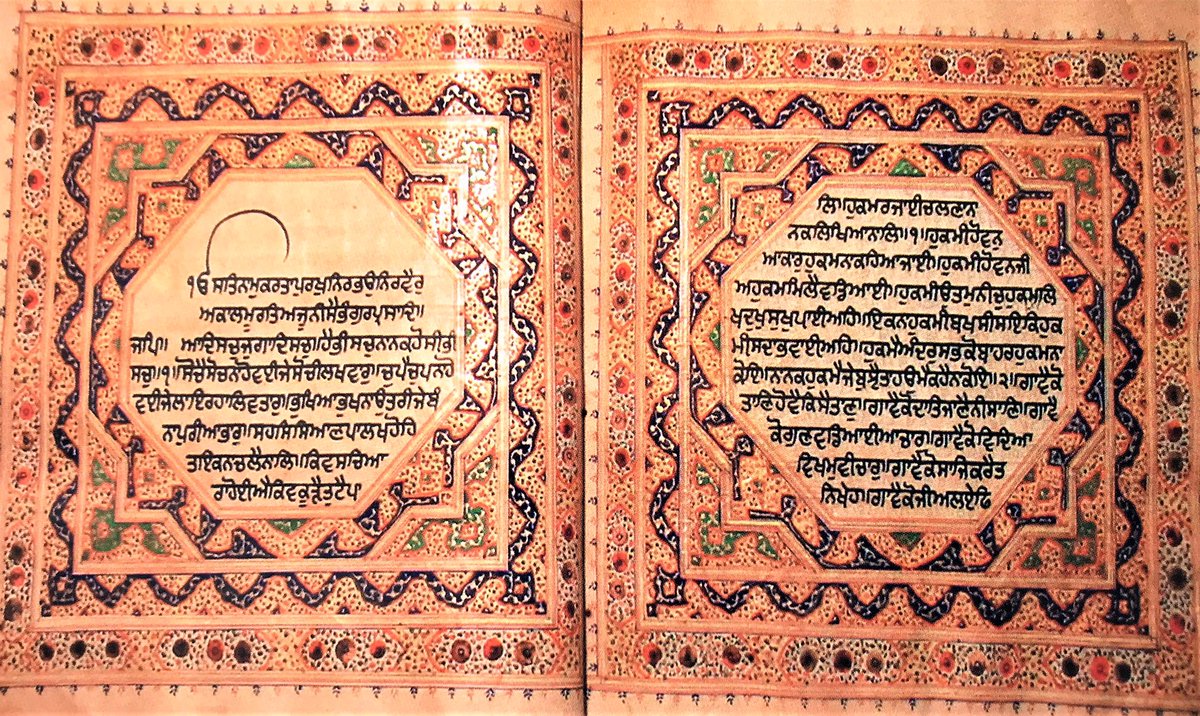 ੴ ਸਤਿਨਾਮੁਕਰਤਾਪੁਰਖੁਨਿਰਭਉਨਿਰਵੈਰੁ
ਅਕਾਲਮੂਰਤਿਅਜੂਨੀਸੈਭੰਗੁਰਪ੍ਰਸਾਦਿ॥
ਜਪੁ॥ ਆਦਿਸਚੁਜੁਗਾਦਿਸਚੁ॥ਹੈਭੀਸਚੁਨਾਨਕਹੋਸੀਭੀ
ਸਚੁ॥੧॥ਸੋਚੈਸੋਚਿਨਹੋਵਈਜੇਸੋਚੀਲਖਵਾਰ॥ਚੁਪੈਚੁਪਨਹੋ
ਵਈਜੇਲਾਇਰਹਾਲਿਵਤਾਰ॥ਭੁਖਿਆਭੁਖਨਉਤਰੀਜੇਬੰ
ਨਾਪੁਰੀਆਭਾਰ॥ਸਹਸਸਿਆਣਪਾਲਖਹੋਹਿ
ਤਾਇਕਨਚਲੈਨਾਲਿ॥ਕਿਵਸਚਿਆ
ਰਾਹੋਈਐਕਿਵਕੂੜੈਤੁਟੈਪਾ
ਲਿ॥ਹੁਕਮਿਰਜਾਈਚਲਣਾਨਾ
ਨਕਲਿਖਿਆਨਾਲਿ॥੧॥ਹੁਕਮੀਹੋਵਨਿ
ਆਕਾਰਹੁਕਮੁਨਕਹਿਆਜਾਈ॥ਹੁਕਮੀਹੋਵਨਿਜੀ
ਅਹੁਕਮਿਮਿਲੈਵਡਿਆਈ॥ਹੁਕਮੀਉਤਮੁਨੀਚੁਹੁਕਮਿਲਿ
ਖਿਦੁਖਸੁਖਪਾਈਅਹਿ॥ਇਕਨਾਹੁਕਮੀਬਖਸੀਸਇਕਿਹੁਕ
ਮੀਸਦਾਭਵਾਈਅਹਿ॥ਹੁਕਮੈਅੰਦਰਿਸਭੁਕੋਬਾਹਰਿਹੁਕਮਨ
ਕੋਇ॥ਨਾਨਕਹੁਕਮੈਜੇਬੁਝੈਤਹਉਮੈਕਹੈਨਕੋਇ॥੨॥ਗਾਵੈਕੋ
ਤਾਣੁਹੋਵੈਕਿਸੈਤਾਣੁ॥ਗਾਵੈਕੋਦਾਤਿਜਾਣੈਨੀਸਾਣੁ॥ਗਾਵੈ
ਕੋਗੁਣਵਡਿਆਈਆਚਾਰ॥ਗਾਵੈਕੋਵਿਦਿਆ
ਵਿਖਮੁਵੀਚਾਰੁ॥ਗਾਵੈਕੋਸਾਜਿਕਰੇਤ
ਨੁਖੇਹ॥ਗਾਵੈਕੋਜੀਅਲੈਫਿ